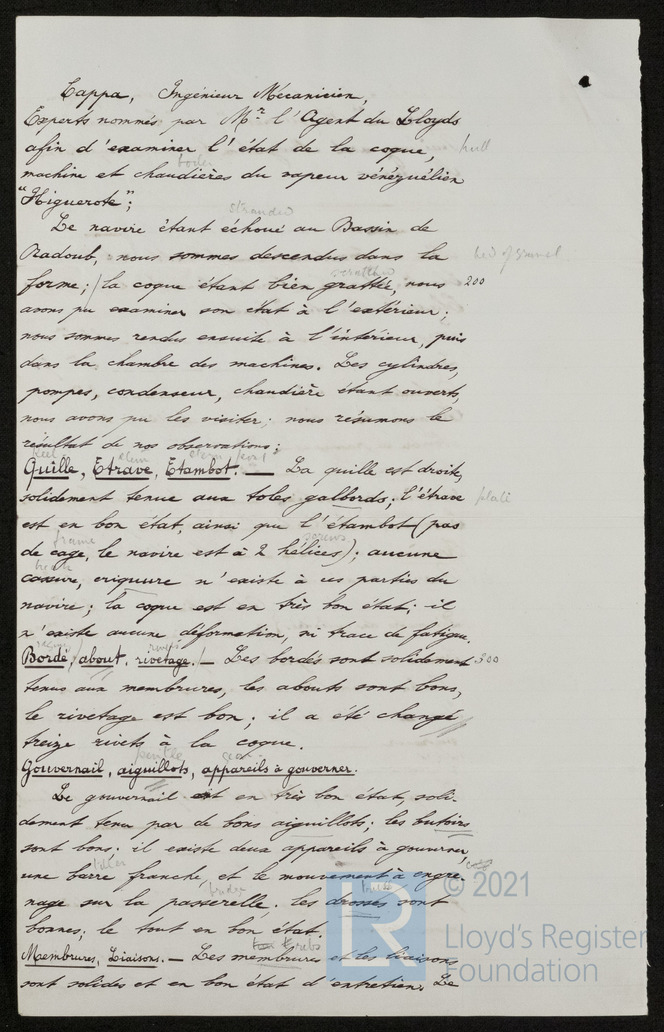 Cappa, Ingénieur Mécanicien,
Experts nommés par Mr l'Agent du Lloyds
afin d'examiner l'état de la coque, hull
boiler
machine et chaudières du vapeur vénézuélien
"Higuerote";
stranded
Le navire étant échoué au Bassin de
Radoub, nous sommes descendus dans la bed of gravel
scratched
forme; / la coque étant bien grattée, nous 200
avons pu examiner son état à l'extérieur;
nous sommes rendus ensuite à l'intérieur, puis
dans la chambre des machines. Les cylindres,
pompes, condenseur, chaudière étant ouverts,
nous avons pu les visiter; nous résumons le
résultat de nos observations;
keel stem stern post
Quille, Etrave, Etambot. — La quille est droite,
solidement tenue aux toles galbords; l'étrave plate
est en bon état, ainsi que l'étambot (pas
frame screws
de cage, le navire est à 2 hélices); aucune
break
cassure, criqure n'existe à ces parties du
navire; la coque est en très bon état; il
n'existe aucune déformation, ni trace de fatigue.
rivets
Bordé, about, rivetage. / — Les bordés sont solidement 300
tenus aux membrures, les abouts sont bons,
le rivetage est bon; il a été changé
treize rivets à la coque.
pintle gear
Gouvernail, aiguillots, appareils à gouverner.
Le gouvernail est en très bon état, soli-
dement tenu par de bons aiguillots; les butoirs
sont bons; il existe deux appareils à gouverner,
tiller
une barre franche et le mouvement à engre-
bridge
nage sur la passerelle; les drosses sont
bonnes; le tout en bon état.
Membrures, Liaisons. — Les membrures et les liaisons
sont solides et en bon état d'entretien. Le
© 2021
LR
Lloyd's Register
Foundation